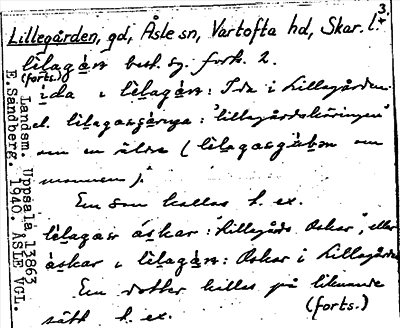 3.
Lillegården, gd, Åsle sn, Vartofta hd, Skar. l.
lilagån best. sg. forts. 2.
(forts.)
ida i lilagån: Ida i Lillegården
el. lilagasgärnja: "lillegårdskäringen"
om en äldre (lilagasgubən om
mannen).
En son kallas t. ex.
lilagas áskar: "Lillegårds Oskar", eller
áskar i lilagån: Oskar i Lillegården
En dotter kallas på liknande
sätt t. ex. (forts.)
Landsm. Uppsala 13863
E. Sandberg. 1940. ÅSLE VGL.